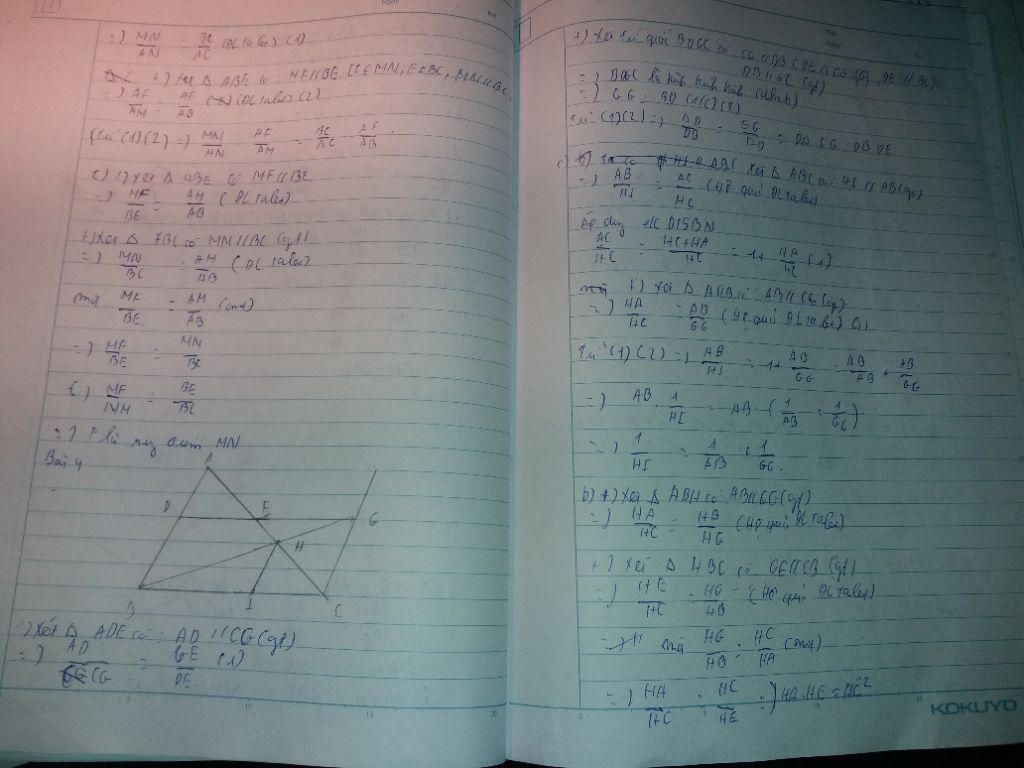 =) MN/AN = BC/AC (ĐL talet) (1)
2) Xét Δ ABE có MF // BE (F ∈ MN, E ∈ BC, MN // BC
=) AF/AM = AE/AB (ĐL tales) (2)
Từ (1) (2) =) MN/AN . AF/AM = BC/AC . AE/AB
c) 1) Xét Δ ABE có MF // BE
=) MF/BE = AM/AB (ĐL tales)
+) Xét Δ ABC có MN // BC (gt)
=) MN/BC = AM/AB (ĐL tales)
mà MF/BE = AM/AB (cmt)
=) MF/BE = MN/BC
(=) MF/MN = BE/BC
=) F là trung điểm MN
Bài 4
A
D E G
H
B I C
+) Xét Δ ADE có: AD // CG (gt)
=) AD/CG = GE/DE (1)
+) Xét tứ giác BDGC có CG // DB (DE ∩ CG = {G}, DE // BC)
DB // GC (gt)
=) BDGC là hình bình hành (dhnb)
=) CG = BD (1) (2)
Từ (1) (2) =) AD/DB = EG/ED = DA . EG = DB . DE
c) Xét Δ ABC có HI // AB (gt)
=) AB/HI = AC/HC (Hệ quả ĐL tales)
Áp dụng TC DTSBN
AC/HC = HC+HA/HC = 1 + HA/HC (1)
1) Xét Δ AHB có AB // CG (gt)
=) HA/HC = AB/CG (Hệ quả ĐL tales)
Từ (1) (2) =) AB/HI = 1 + AB/CG = AB/AB + AB/CG
=) AB . 1/HI = AB . (1/AB + 1/CG)
=) 1/HI = 1/AB + 1/CG.
b) +) Xét Δ ABH có AB // CG (gt)
=) HA/HC = HB/HG (Hệ quả ĐL tales)
+) Xét Δ HBC có GE // CB (gt)
=) HE/HC = HG/HB (Hệ quả ĐL tales)
mà HG/HB = HC/HA (cmt)
=) HA/HC = HC/HE =) HA . HE = HC²
KOKUYO